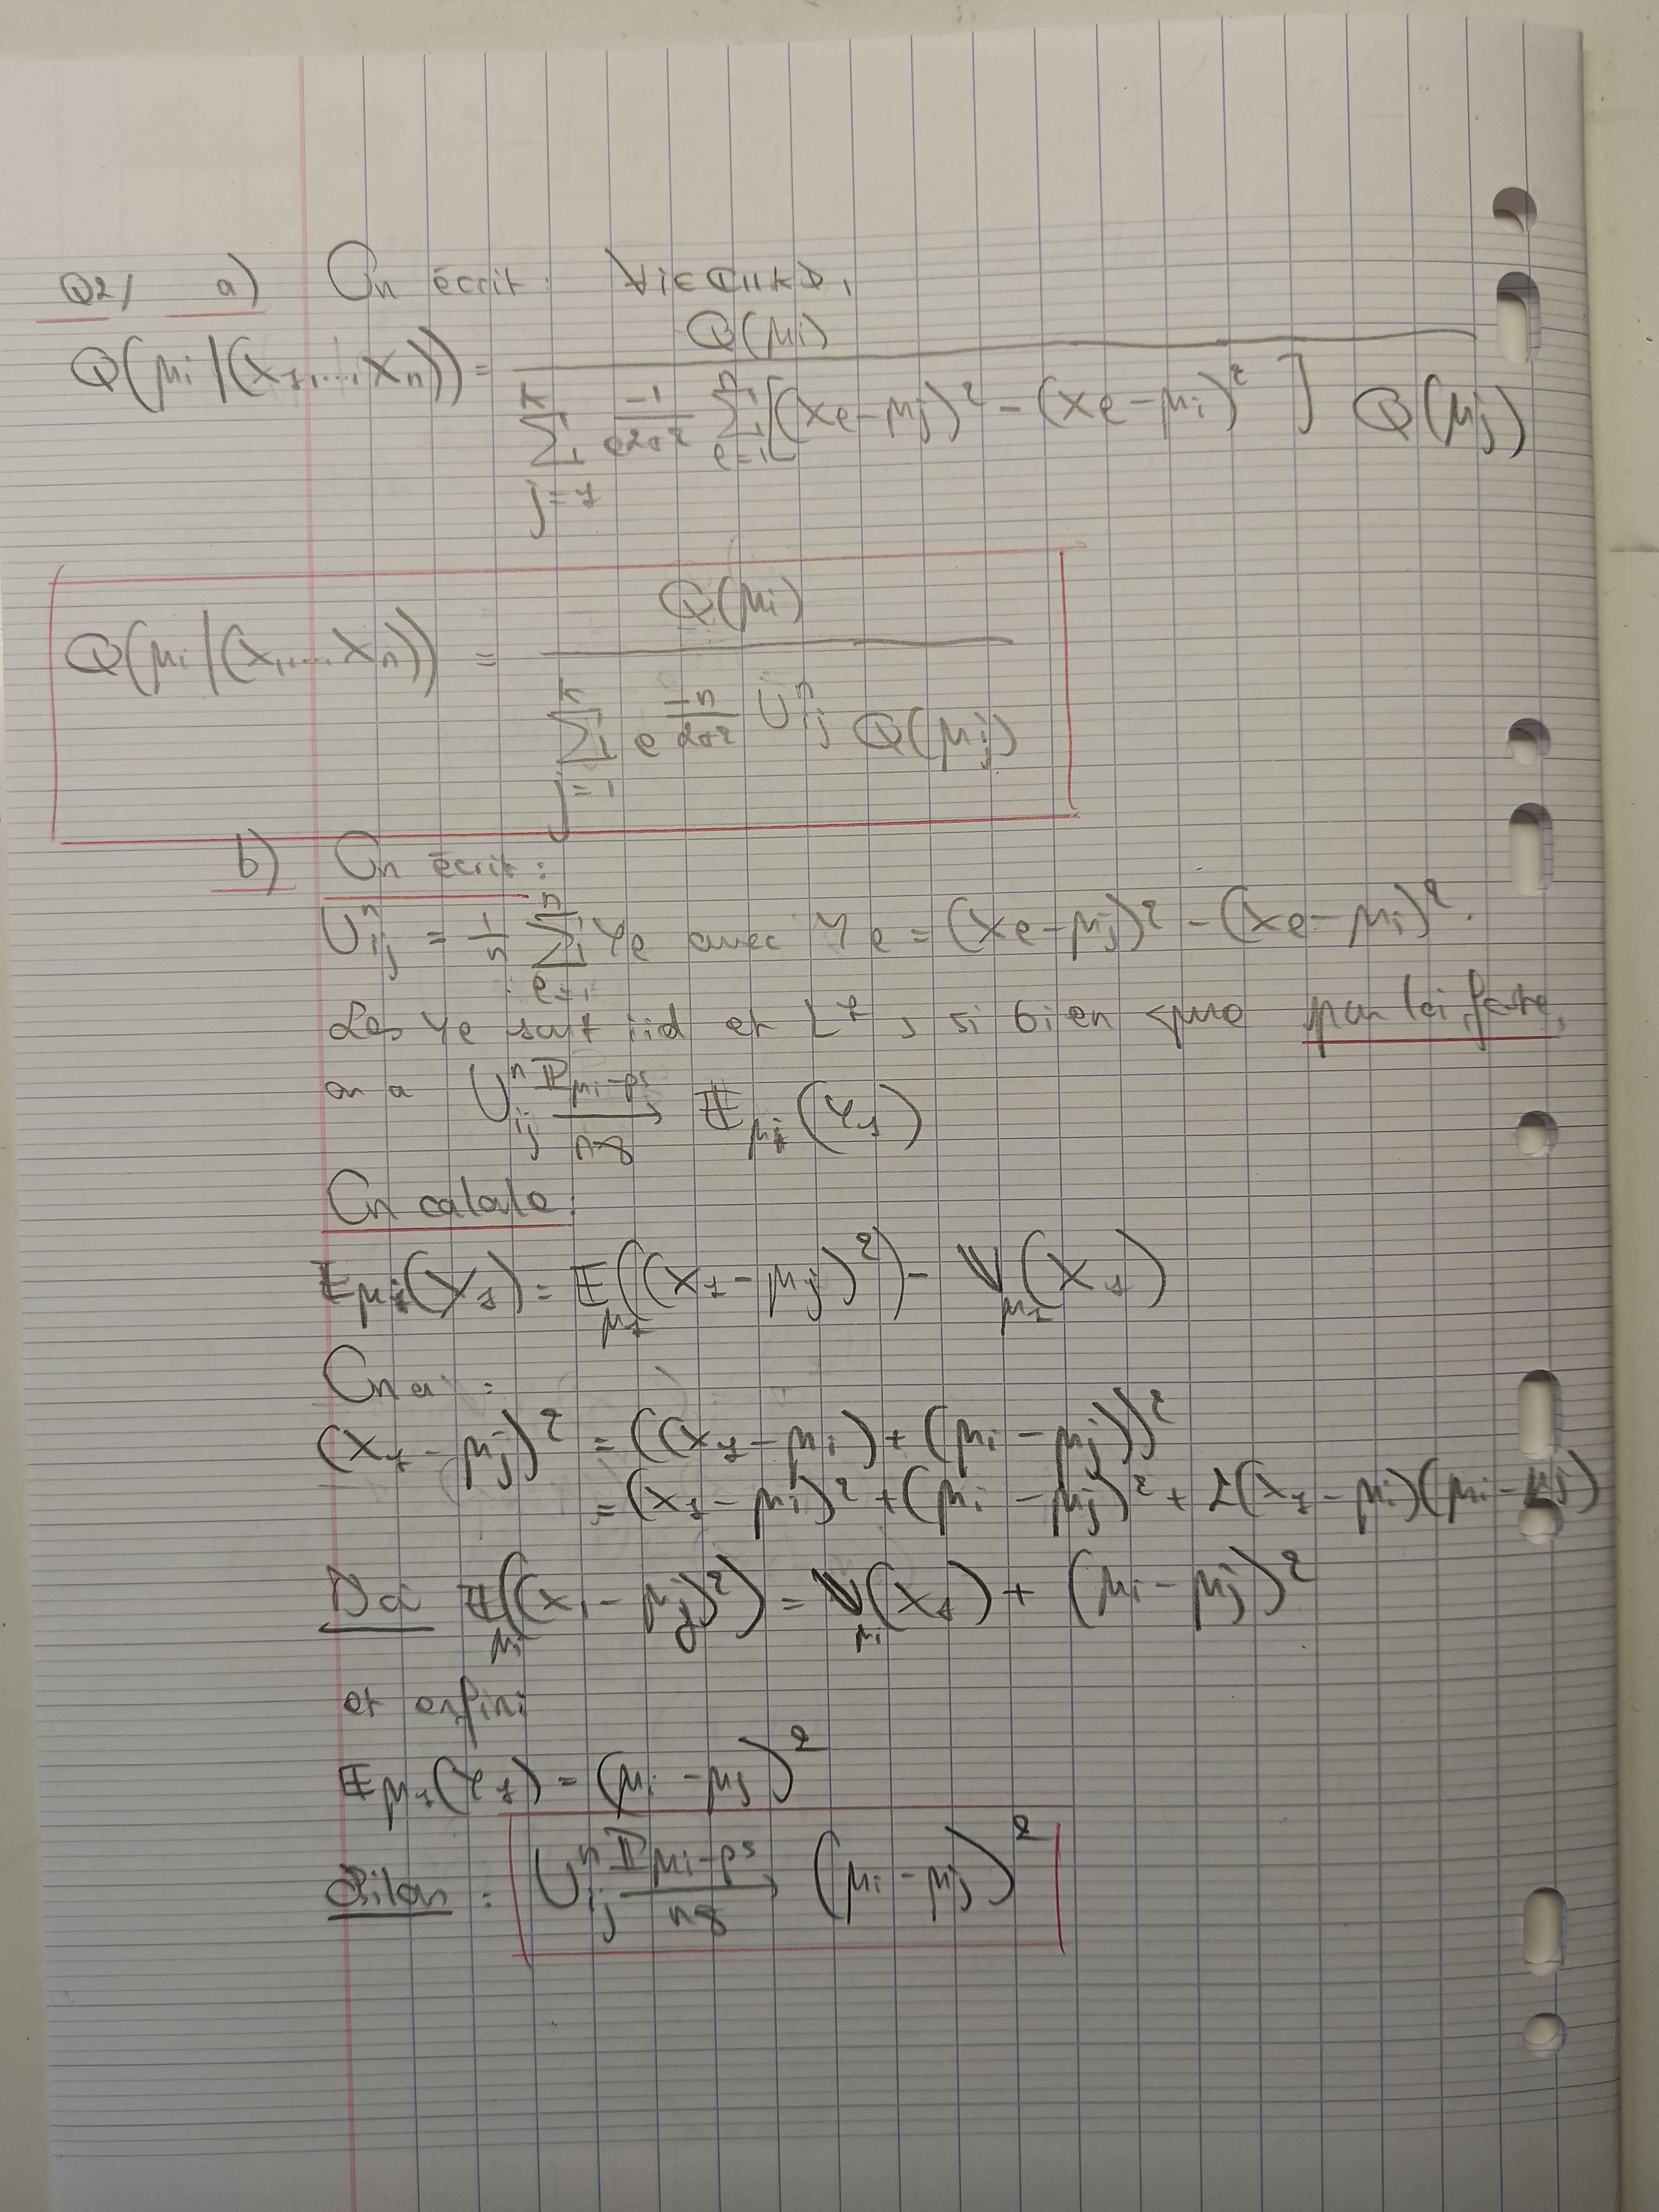 Q2/ a) On écrit : ∀i∈⟦1,k⟧,
Q(μi|(x1,...,xn)) = Q(μi) / ∑_{j=1}^{k} e^{-1/2σ² ∑_{e=1}^{n} [(xe-μj)² - (xe-μi)²]} Q(μj)
Q(μi|(x1,...,xn)) = Q(μi) / ∑_{j=1}^{k} e^{-n/2σ² U_{ij}^n} Q(μj)
b) On écrit :
U_{ij}^n = 1/n ∑_{e=1}^{n} Ye avec Ye = (xe-μj)² - (xe-μi)².
Les Ye sont iid et L¹, si bien que par loi forte,
on a U_{ij}^n →_{n∞}^{ℙμi-ps} 𝔼_{μi}(Y1)
On calcule :
𝔼μi(Y1) = 𝔼_{μi}((X1-μj)²) - 𝕍_{μi}(X1)
On a :
(X1-μj)² = ((X1-μi)+(μi-μj))²
= (X1-μi)² + (μi-μj)² + 2(X1-μi)(μi-μj)
D'où 𝔼_{μi}((X1-μj)²) = 𝕍_{μi}(X1) + (μi-μj)²
et enfin :
𝔼μi(Y1) = (μi-μj)²
Bilan : U_{ij}^n →_{n∞}^{ℙμi-ps} (μi-μj)²